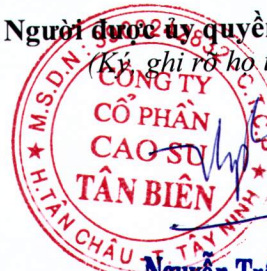 Người được ủy quyền
(Ký, ghi rõ họ
M.S.D.N:
C.T.C.P
CÔNG TY
CỔ PHẦN
CAO SU
TÂN BIÊN
H.TÂN CHÂU - T. TÂY NINH
Nguyễn